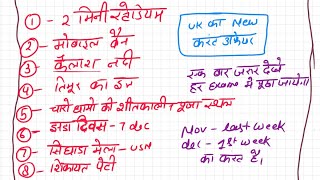 ① - 2 मिनी स्टेडियम
② - मोबाइल वैन
③ - कैलाश नदी
④ - तिमूर का इत्र
⑤ चारो धामो की शीतकालीन पूजा स्थल
⑥ - डांडा दिवस - 7 dec
⑦ - सिंघाडा मेला - USN
⑧ - शिकायत पेटी
UK का New
करंट अफेयर
एक बार जरूर देखे
हर Exam में पूछा जायेगा
Nov - last week
dec - 1st week
का करंट है,